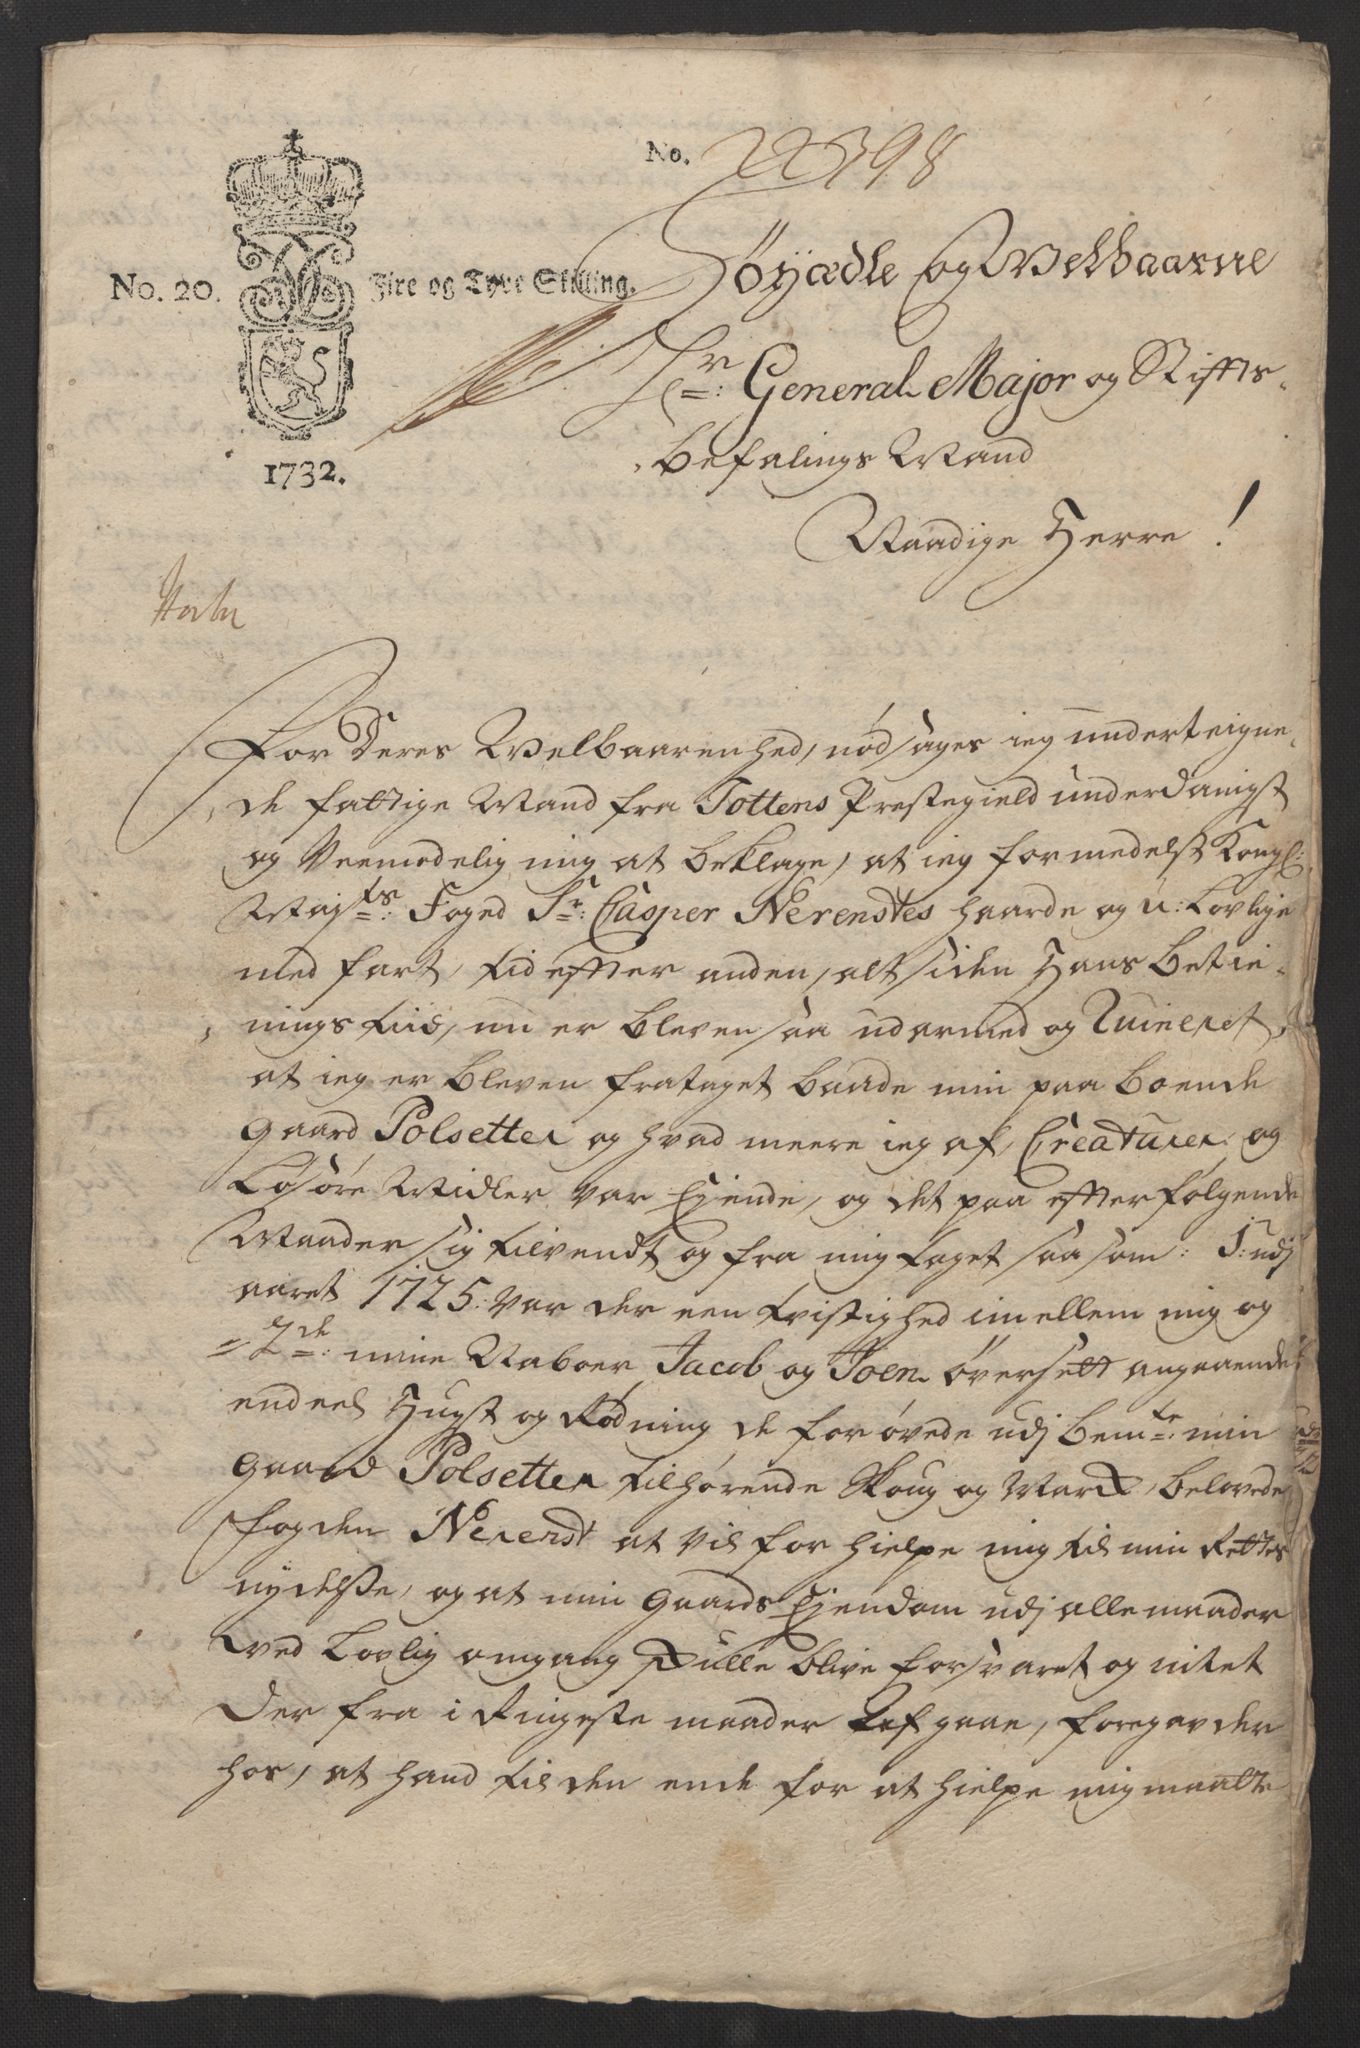 No. 22398
No. 20. Fire og Tyve Skilling.
1732.
Höyædle og Welbaarne
Hr: General Major og Stiffts-
befalings Mand
Naadige Herre!
For Deres Welbaarenhed, nödsages ieg underteigne-
de fattige Mand fra Tottens Præstegield underdanigst
og Veemodelig mig at beklage, at ieg formedelst Kongl:
Mayts: Foged Sr: Casper Nerenstes haarde og u:Lovlige
medfart, tid effter anden, alt siden Hans betie-
nings tiid, nu er bleven saa udarmed og Ruineret,
at ieg er bleven frataget baade min paaboende
gaard Polsetter og hvad meere ieg af Creaturer og
Lösöre Midler var Ejende, og det paa effterfölgende
Maader sig tilvendt og fra mig taget saasom: 1: udj
aaret 1725: var der een tvistighed imellem mig og
2de: mine Naboer Jacob og Joen översett angaaende
endeel Hugst og Rödning de forövede udj bemte: min
gaard Polsetter tilhörende Skoug og Marck, belovede
Fogden Nerenst at vil forhielpe mig til min Rettes
nydelse, og at min gaards Ejendom udj alle maader
ved Lovlig omgang skulle blive forsvaret og intet
der fra i Ringeste maader Afgaae, foregav der
hos, at hand til den ende for at hielpe mig maatte